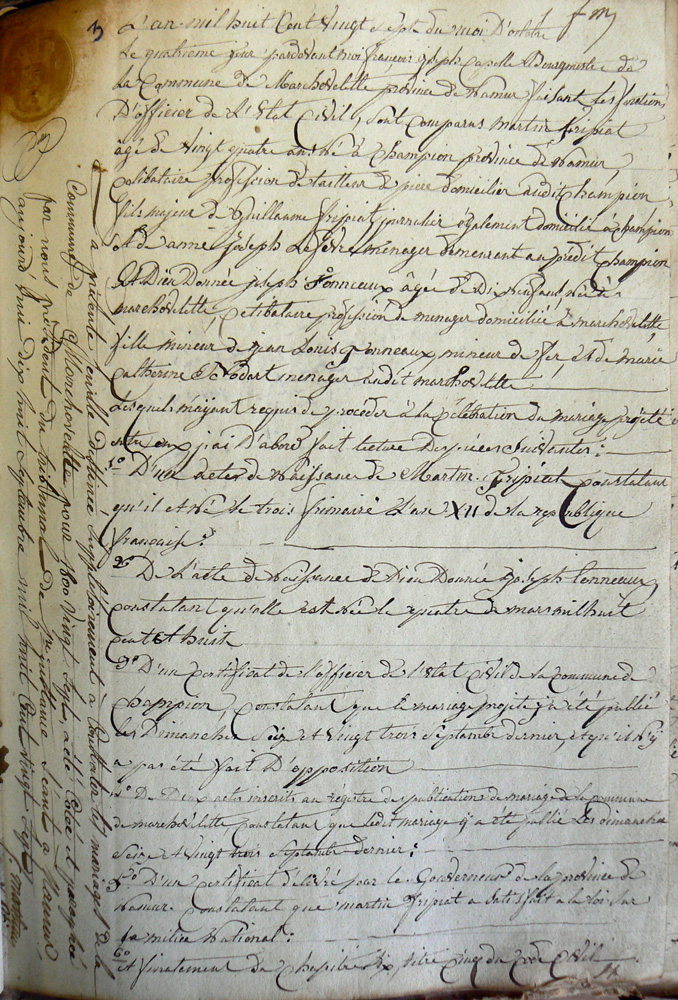 3
L'an mil huit Cent Vingt sept du moi D'octobre
Le quatrieme jour pardevant moi françois joseph Capelle Bourgmestre de
La Commune de Marchovelette province de Namur faisant les fonctions
D'officier de L'Etat Civil, sont comparus Martin Fripiat
âgé de Vingt quatre ans Né à Champion province de Namur
Celibataire profession de tailleur de piere domicilier audit Champion
fils majeur de Guillaume Fripiat journalier également domicilié à Champion
et de anne joseph menager demeurant au prédit Champion
Et Dieu Donnée joseph Tonneaux âgée de Dix neuf ans, Née à
marchovelette, Celibataire profession de menager domiciliée à marchovelette
fille mineur de jean Louis Tonneaux, mineur de fer et de Marie
Catherine menager audit marchovelette
Lesquels m'ayant requis de proceder à la Célébration du mariage projeté
entre eux j'ai D'abord fait lecture Des pieces Suivantes :
1º D'un actes de Naissance de Martin Fripiat Constatant
qu'il et Né le trois frimaire L'an XII de la republique
française :
2º De L'acte de Naissance de Dieu Donnée joseph Tonneaux
Constatant qu'elle est Née le quatre de mars mil huit
Cent et huit
3º D'un Certificat de l'officier de l'Etat Civil de la Commune de
Champion, Constatant que le mariage projeté y a été publié
les Dimanches Seize et Vingt trois Septembre dernier, et qu'il N'y
a pas été fait D'opposition
4º De Deux actes inscrits au régistre des publications de mariage de la Commune
de marchovelette Constatant que ledit mariage y a été publié Les dimanches
Seize et Vingt trois Septembre Dernier :
5º D'un Certificat délivré par le Gouverneur de la province de
Namur Constatant que martin Fripiat a Satisfait a la loi sur
la milice National :
6º Et finalement du Chapitre Six titre Cinq du Code Civil
La présente feuille destinée supplétoirement à Constater les mariages de la
Commune de Marchovelette pour 1800 Vingt Sept, a été Cotée et paragée
par nous président du tribunal de 1re instance séant à Namur
aujourd'hui dix huit Septembre mil huit Cent Vingt Sept